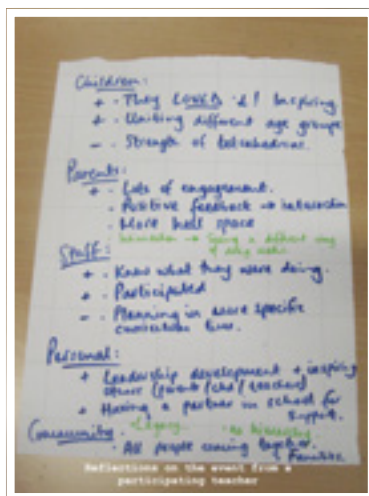 Children:
+ - They LOVED it! Inspiring
+ - Uniting different age groups
- - Strength of tetrahedrons.
Parents:
+ - Lots of engagement.
- Positive feedback → interaction
- More hall space
Interaction → Seeing a different way of doing maths.
Staff:
+ - Knew what they were doing.
+ - Participated
- - Planning in more specific
curriculum time.
Personal:
+ Leadership development + inspiring
others (parent/chd/teacher)
+ Having a partner in school for
support.
Community
- Legacy - no hierarchy
- All people coming together.
Families.
Reflections on the event from a
participating teacher